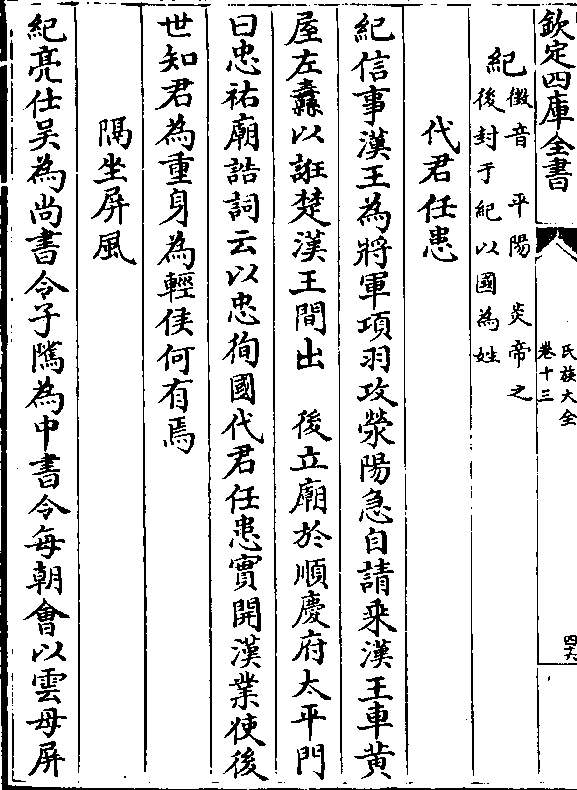 欽定四庫全書
氏族大全
卷十三
四六
紀
徴音　平陽　炎帝之
後封于紀以國為姓
代君任患
紀信事漢王為將軍項羽攻滎陽急自請乘漢王車黄
屋左纛以誑楚漢王間出　後立廟於順慶府太平門
曰忠祐廟誥詞云以忠徇國代君任患實開漢業使後
世知君為重身為輕侯何有焉
隔坐屏風
紀亮仕吴為尚書令子隲為中書令每朝會以雲母屏